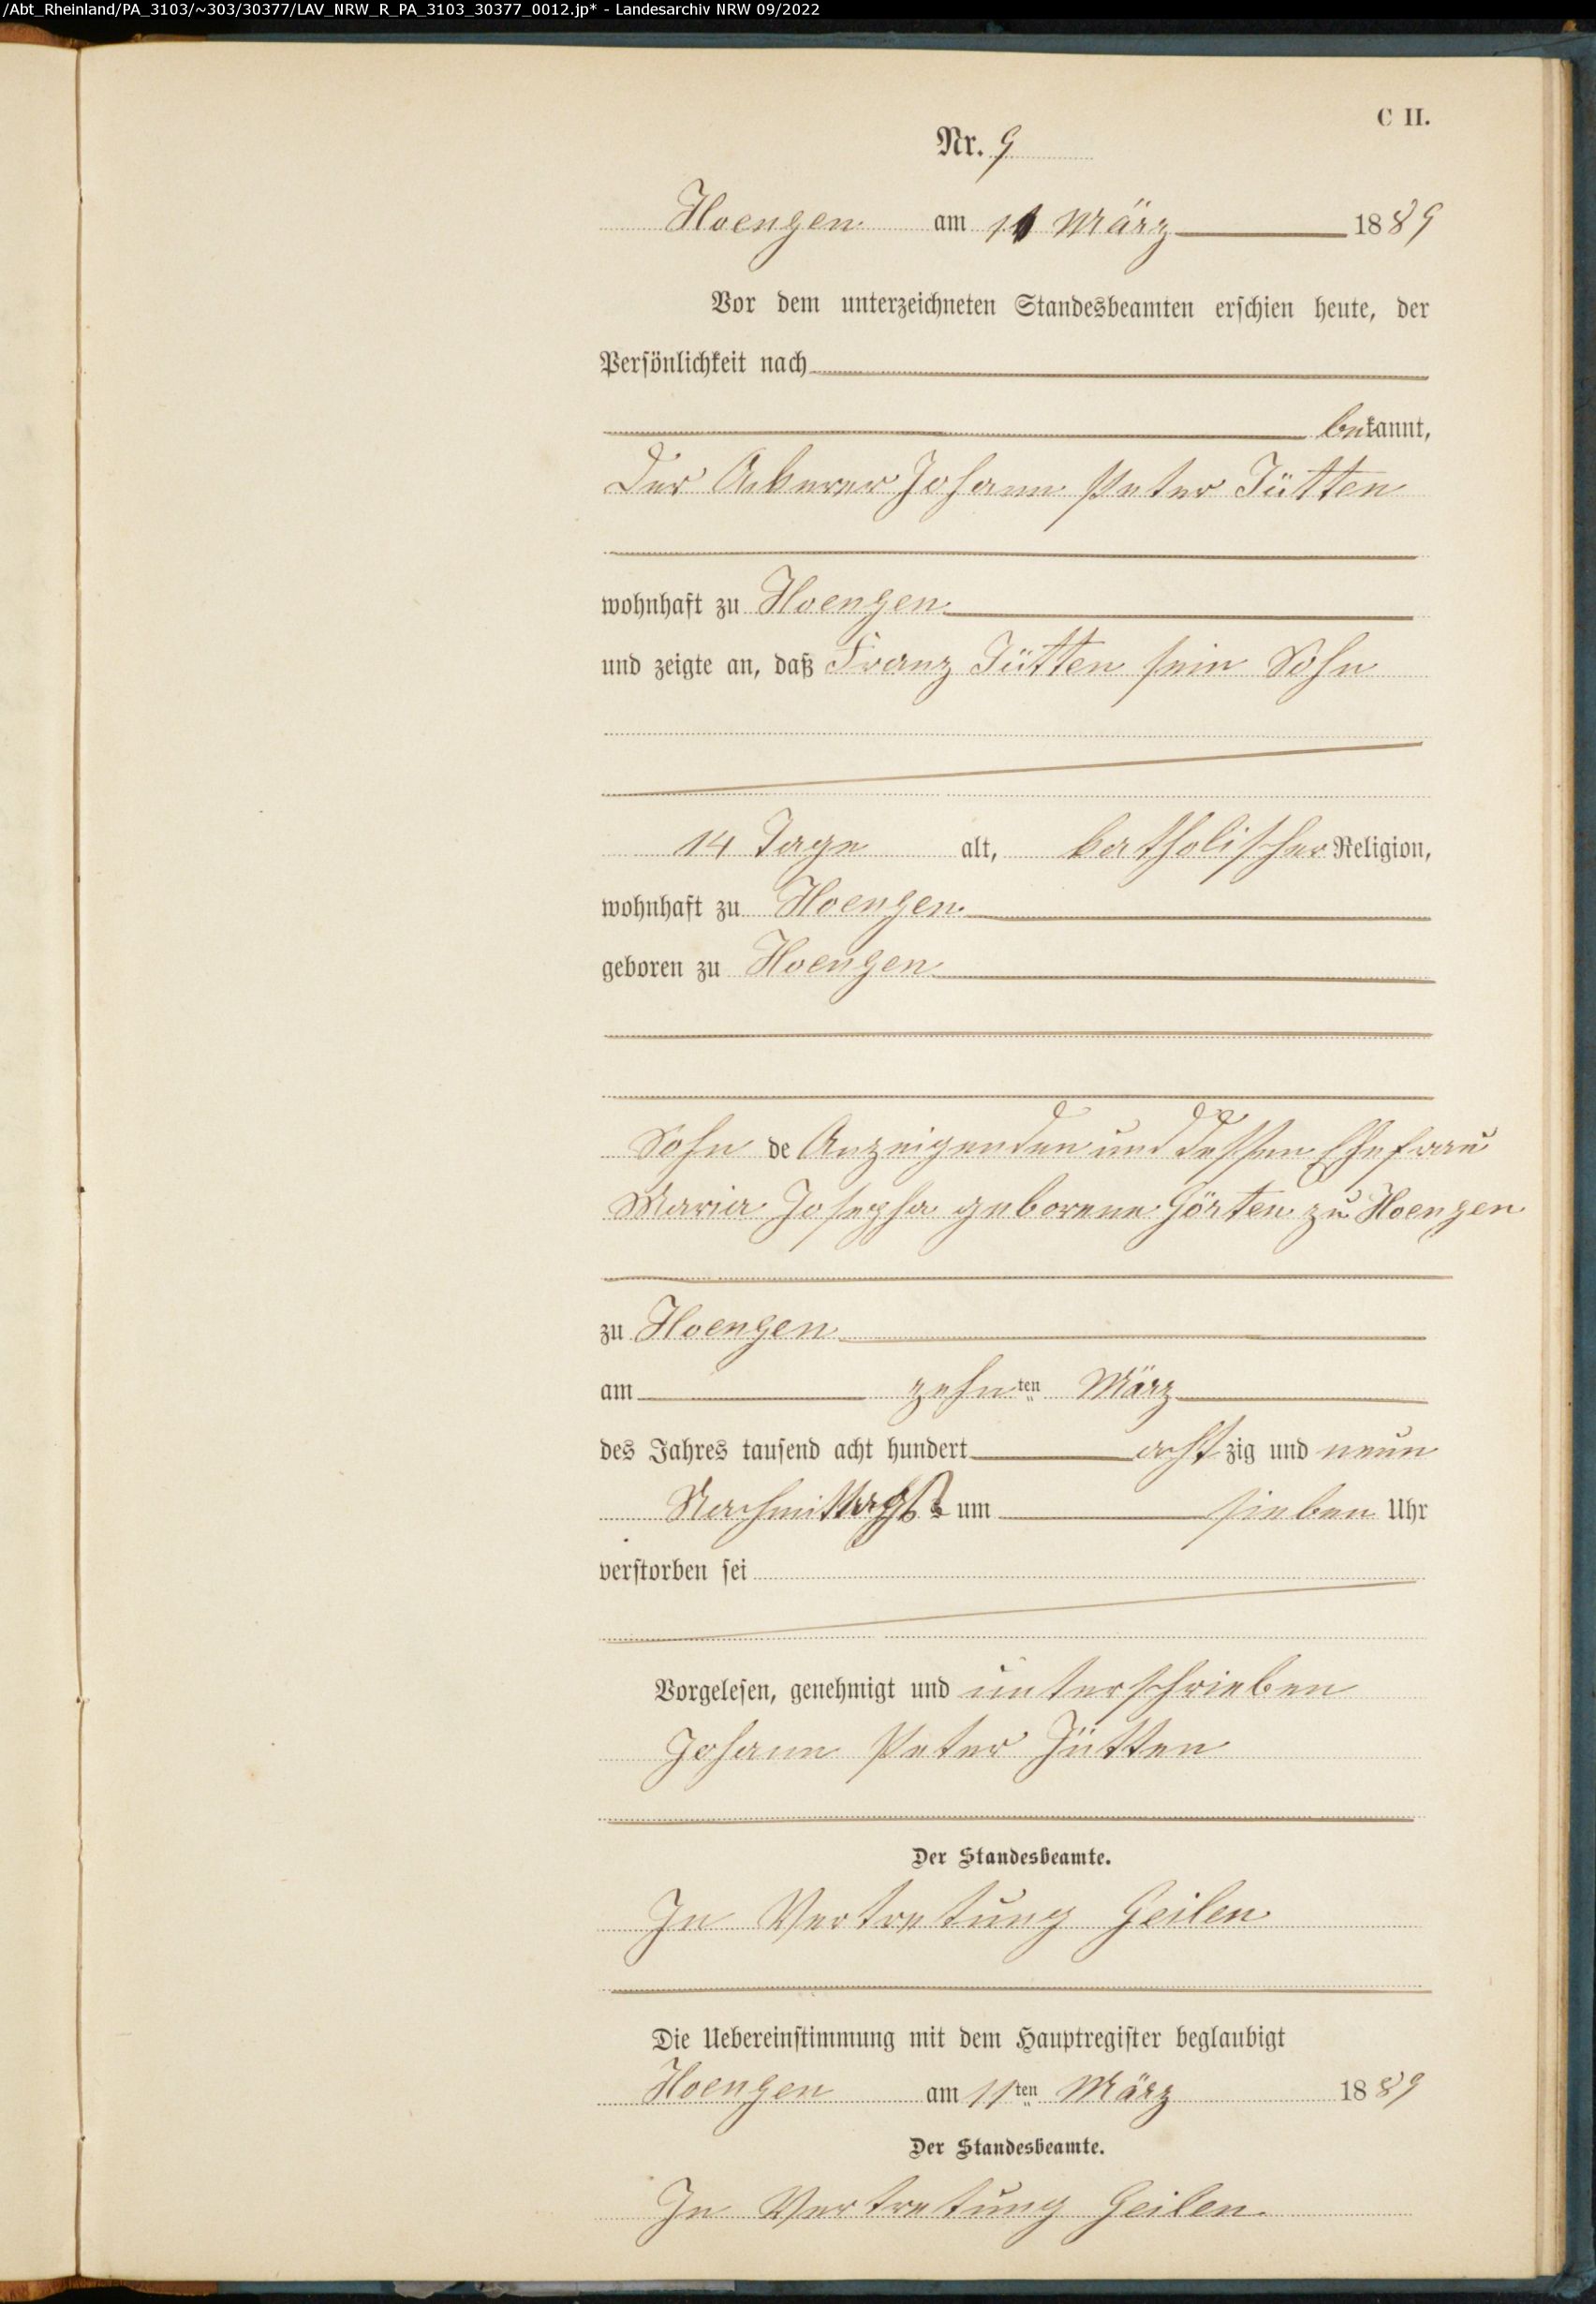 /Abt_Rheinland/PA_3103/~303/30377/LAV_NRW_R_PA_3103_30377_0012.jp* - Landesarchiv NRW 09/2022
C II.
Nr. 9
Hoengen am 11 März 1889
Vor dem unterzeichneten Standesbeamten erschien heute, der
Persönlichkeit nach
bekannt,
Der Ackerer Johann Peter Jütten
wohnhaft zu Hoengen
und zeigte an, daß Franz Jütten sein Sohn
14 Tage alt, katholischer Religion,
wohnhaft zu Hoengen
geboren zu Hoengen
Sohn de Anzeigenden und dessen Ehefrau
Maria Josepha geborene Görten zu Hoengen
zu Hoengen
am zehnten März
des Jahres tausend acht hundert achtzig und neun
Nachmittags um sieben Uhr
verstorben sei
Vorgelesen, genehmigt und unterschrieben
Johann Peter Jütten
Der Standesbeamte.
In Vertretung Geilen
Die Uebereinstimmung mit dem Hauptregister beglaubigt
Hoengen am 11ten März 1889
Der Standesbeamte.
In Vertretung Geilen.